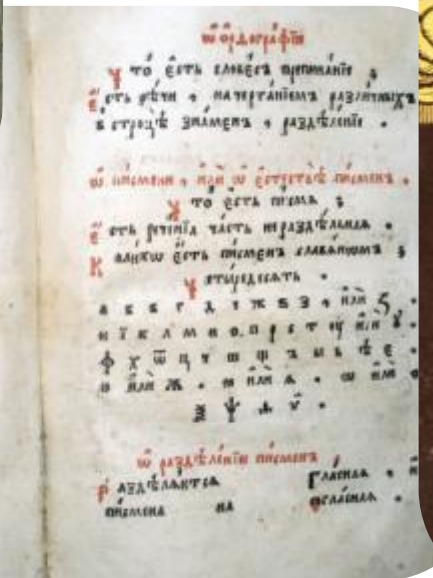 ѿ орѳографїи
Что̀ є҆́сть слове́съ препина́нїе ;
Є҆́сть рѣ́чи , начерта́нїемъ разли́чныхъ
в строцѣ̀ зна́менъ , раздѣле́нїе .
ѿ пи́смени , и҆лѝ ѿ є҆стествѣ̀ пи́сменъ .
Что̀ є҆́сть писмѧ̀ ;
Є҆́сть рече́нїѧ ча́сть нераздѣ́льнаѧ .
Коли́кѡ є҆́сть пи́сменъ славѧ́нскимъ ;
Четы́редесѧть .
а б в г д є ж ѕ з , и҆лѝ ꙁ
и ї к л м н о . п р с т ꙋ и҆лѝ у
ф х ѿ ц ч ш щ ъ ы ь ѣ є
ю и҆лѝ ѫ . ꙗ и҆лѝ ѧ . ѡ и҆лѝ
ѯ ѱ ѳ ѵ .
ѿ раздѣле́нїи пи́сменъ
Раздѣлѧ́ютсѧ Гла́снаѧ .
пи́смена на согла́снаѧ .